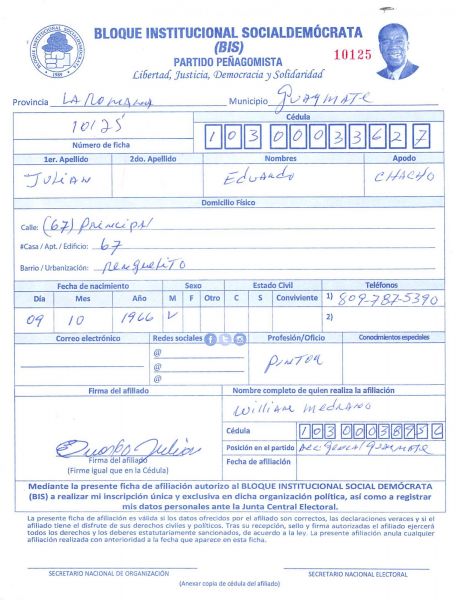 BLOQUE INSTITUCIONAL SOCIALDEMÓCRATA
BLOQUE INSTITUCIONAL SOCIALDEMÓCRATA
(BIS)
PARTIDO PEÑAGOMISTA
10125
Libertad, Justicia, Democracia y Solidaridad
Provincia LA ROMANA Municipio GUAYMATE
10125
Número de ficha
Cédula
10300033627
1er. Apellido 2do. Apellido Nombres Apodo
JULIAN EDUARDO CHACHO
Domicilio Físico
Calle: (67) Principal
#Casa / Apt. / Edificio: 67
Barrio / Urbanización:
Fecha de nacimiento Sexo Estado Civil Teléfonos
Día Mes Año M F Otro C S Conviviente 1) 809-787-5390
09 10 1966 2)
Correo electrónico Redes sociales Profesión/Oficio Conocimientos especiales
@
@
@
PINTOR
Firma del afiliado Nombre completo de quien realiza la afiliación
William Medrano
Cédula
Eduardo Julian
Firma del afiliado
(Firme igual que en la Cédula)
Posición en el partido
Fecha de afiliación
Mediante la presente ficha de afiliación autorizo al BLOQUE INSTITUCIONAL SOCIAL DEMÓCRATA
(BIS) a realizar mi inscripción única y exclusiva en dicha organización política, así como a registrar
mis datos personales ante la Junta Central Electoral.
La presente ficha de afiliación es válida si los datos ofrecidos por el afiliado son correctos, las declaraciones veraces y si el
afiliado tiene el disfrute de sus derechos civiles y políticos. Tras su recepción, sello y firma autorizadas el afiliado ejercerá
todos los derechos y los deberes estatutariamente sancionados, de acuerdo a la ley. La presente afiliación anula cualquier
afiliación realizada con anterioridad a la fecha que aparece en esta ficha.
SECRETARIO NACIONAL DE ORGANIZACIÓN SECRETARIO NACIONAL ELECTORAL
(Anexar copia de cédula del afiliado)